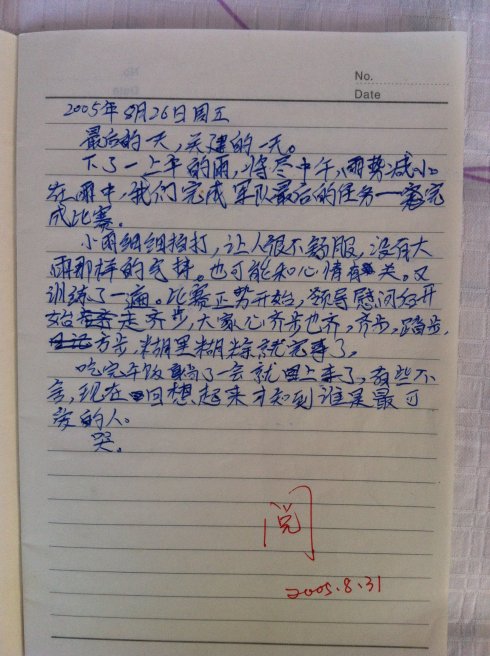 No.
Date
2005年8月26日周五
最后的一天,关键的一天。
下了一上午的雨,将尽中午,雨势减小
在雨中,我们完成军队最后的任务——完
成比赛。
小雨细细拍打,让人很不舒服,没有大
雨那样的完挥。也可能和心情有关。又
训练了一遍。比赛正势开始,领导慰问后开
始走齐步,大家心齐步也齐,齐步,踏步,
方步,糊里糊涂就完事了。
吃完午饭躺了一会就里上来了,有些不
舍,现在回想起来才知到谁是最可
爱的人。
哭。
阅
2005.8.31